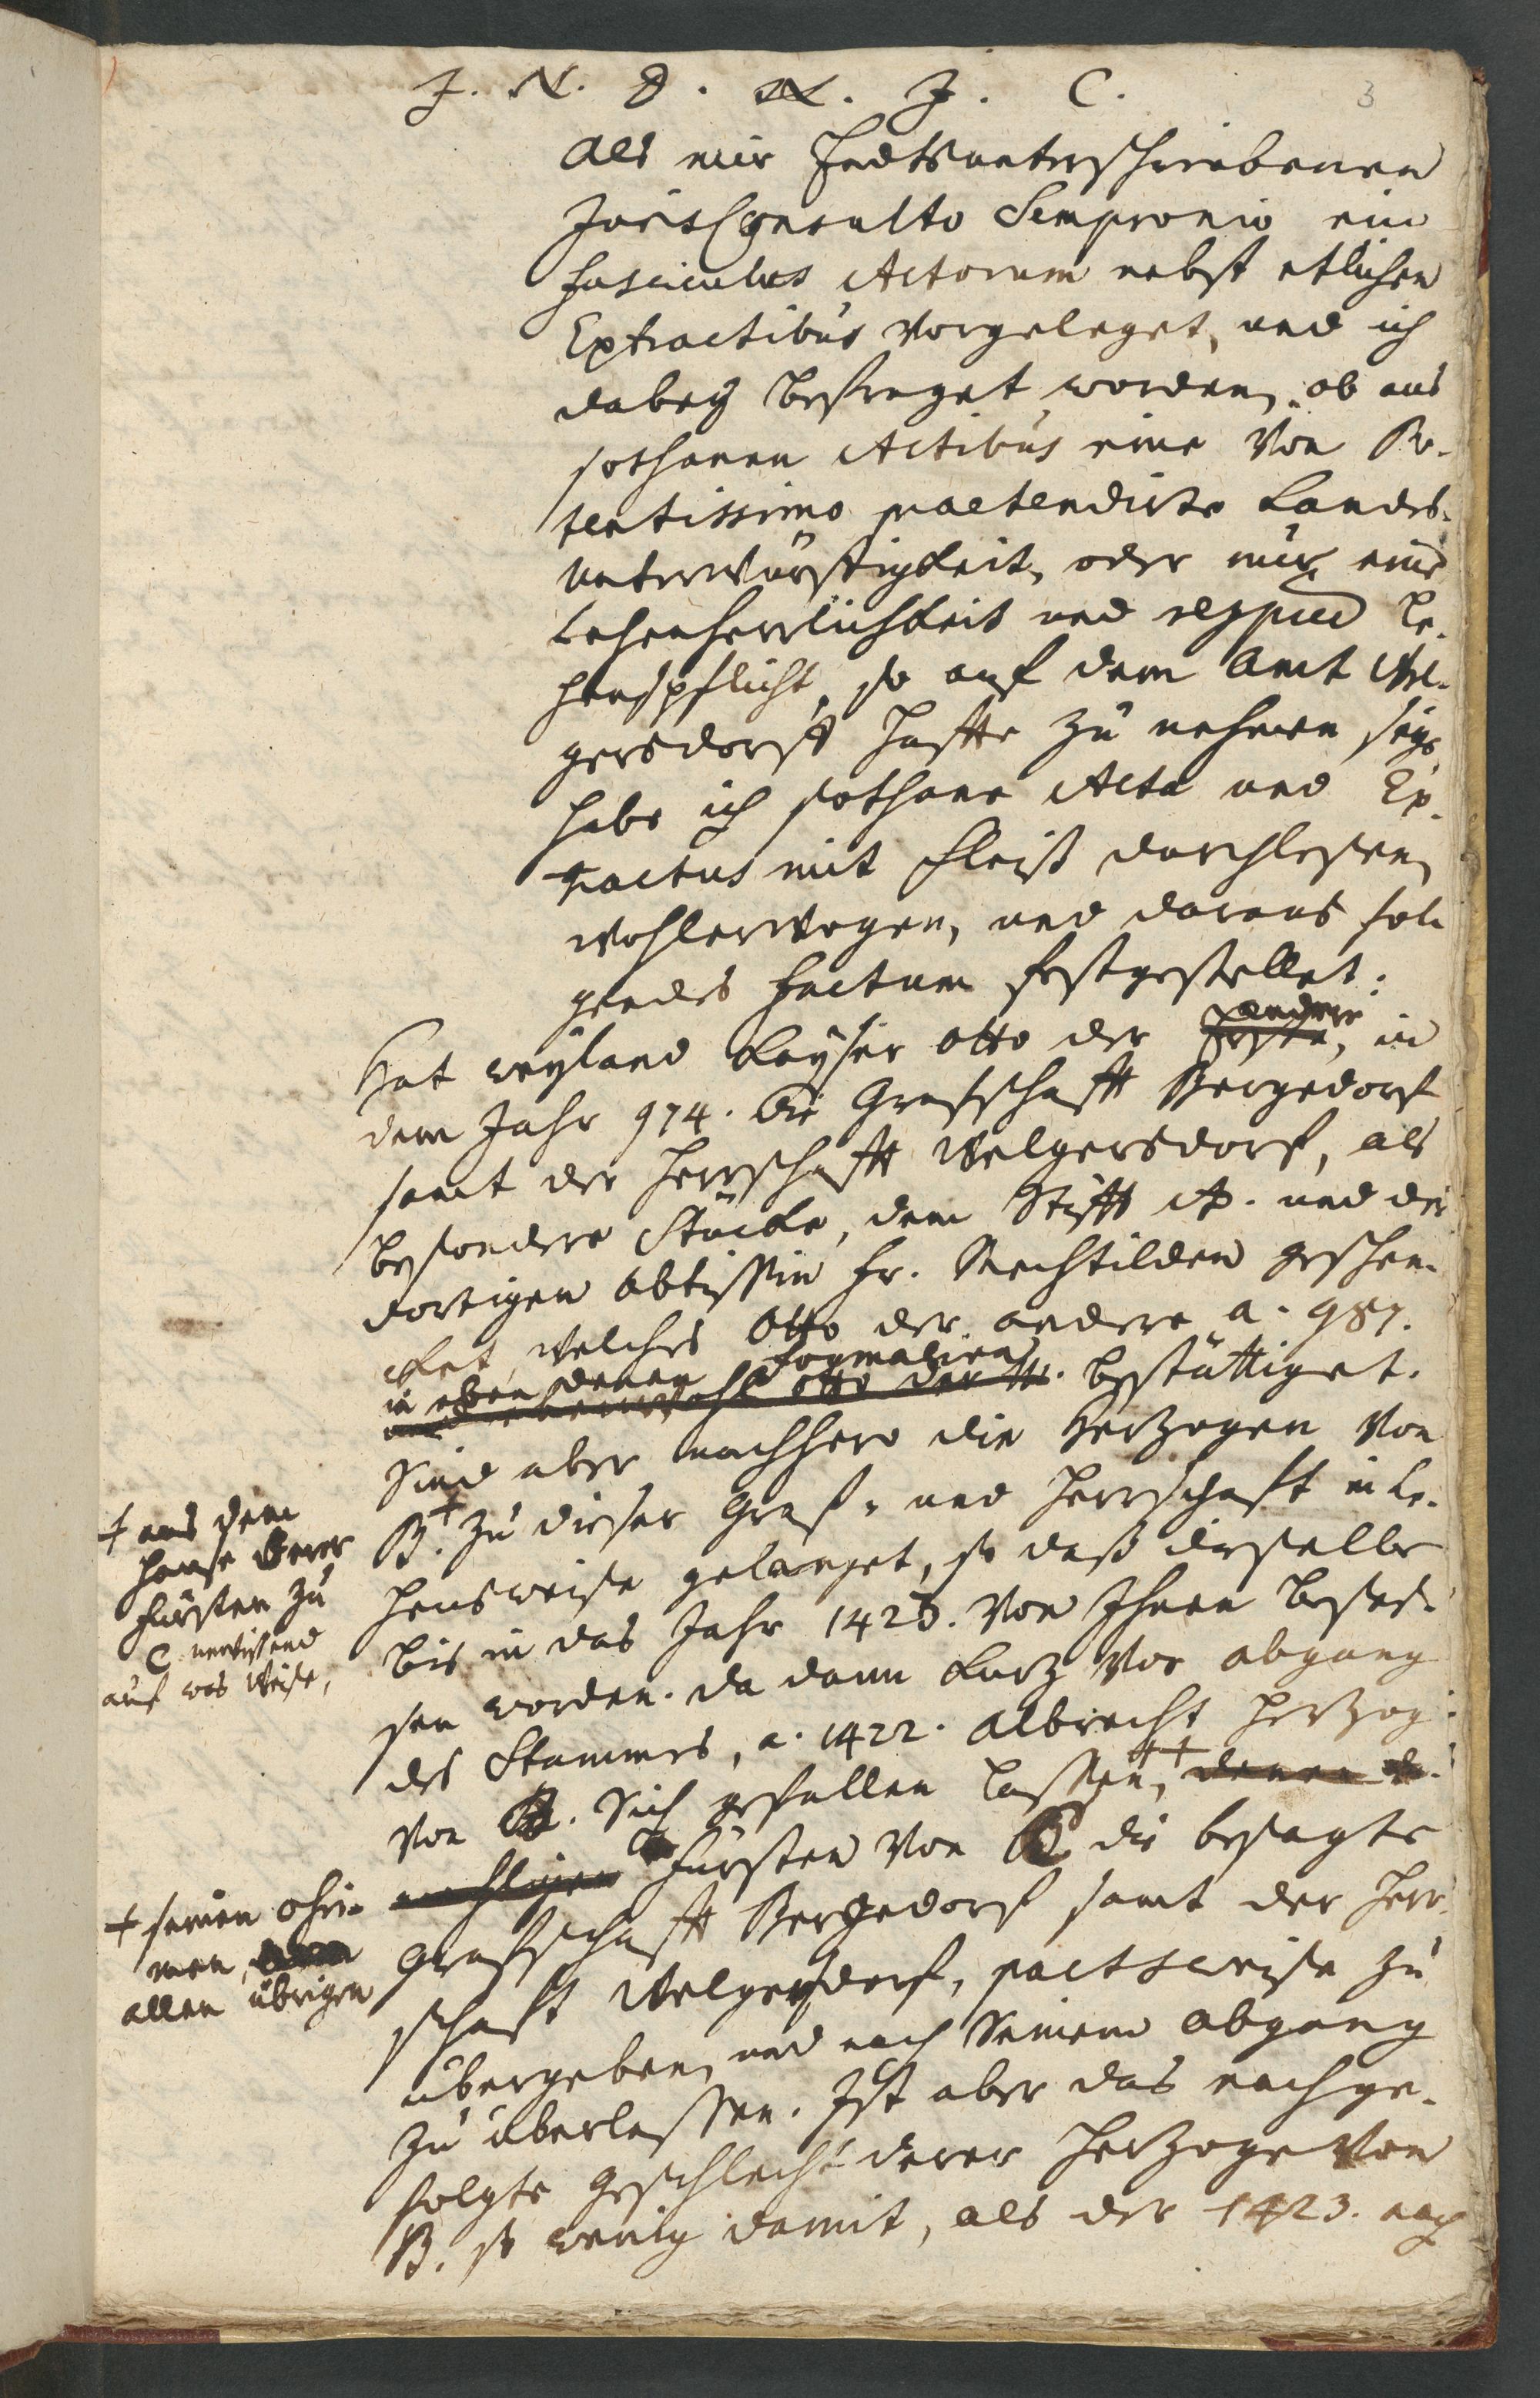 J. N. D. N. J. C.
3
Als mir Endtsunterschriebenen
JurisConsulto Sempronio ein
fasciculus Actorum nebst etlichen
Extractibus vorgeleget, und ich
dabey befraget worden, ob aus
sothanen Actibus eine von Po-
tentissimo praetendirte Landes-
unterwürffigkeit, oder nur eine
Lehenherrlichkeit und Le-
henspflicht, so auf dem Amt Wel-
gersdorff haffte zu nehmen sey,
habe ich sothane Acta und Ex-
tractus mit Fleiß durchlesen,
wohlerwogen, und daraus fol-
gendes Factum festgestellet:
Hat weyland Kayser Otto der Erste, andere in
dem Jahr 974. die Grafschafft Bergedorf
samt der Herrschafft Welgersdorf, als
besondere Stücke, dem Stifft A. und der
dortigen Abtissin Fr. Mechtilden geschen-
cket, welches Otto der andere a. 987.
in eben denen Formalien
Otto der bestättiget.
Sind aber nachhero die Hertzogen von
B.+ zu dieser Graf- und Herrschafft in Le-
hensweise gelanget, so daß dieselbe
bis in das Jahr 1423. von Ihnen beses-
sen worden. da dann kurtz vor abgang
des Stammes, a. 1422. Albrecht Hertzog
von B. sich gefallen lassen,++ denen
Fürsten von C die besagte
Grafschafft Bergedorf samt der Herr-
schafft Welgersdorf, pactsweise zu
übergeben, und nach Seinem Abgang
zu überlassen. Ist aber das nachge-
folgte Geschlecht derer Hertzoge von
B. so wenig damit, als der 1423. nach
+ aus dem
Hause derer
Fürsten zu
C. unwissend
auf was Weise,
+ seinen Ohei-
men,
allen übrigen